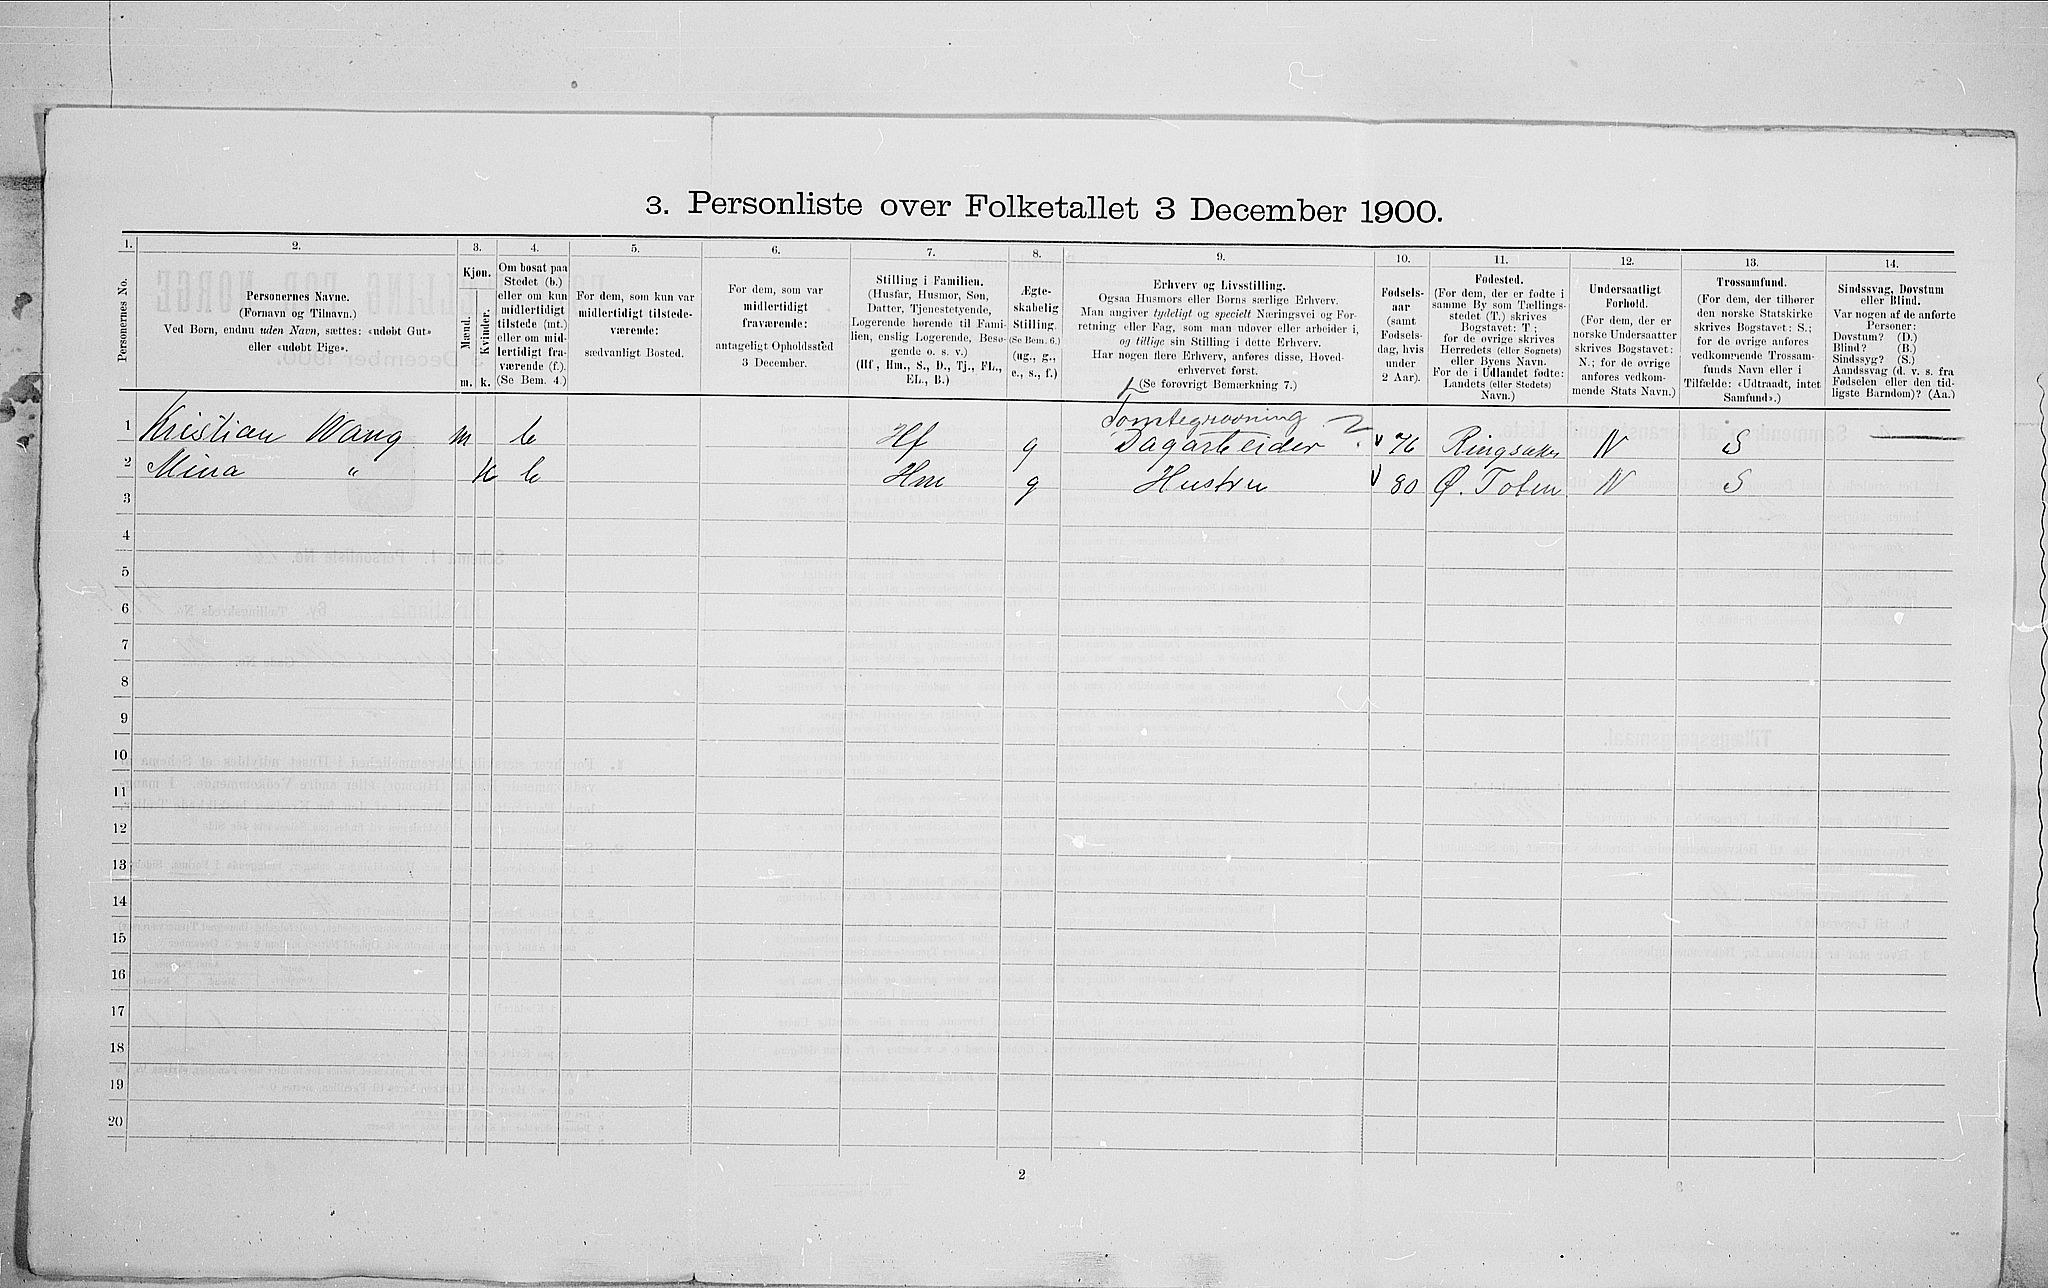 3. Personliste over Folketallet 3 December 1900.
1. 2. 3. 4. 5. 6. 7. 8. 9. 10. 11. 12. 13. 14.
Personernes No.
Personernes Navne.
(Fornavn og Tilnavn.)
Ved Børn, endnu uden Navn, sættes: «udøbt Gut»
eller «udøbt Pige».
Kjøn.
Mænd.
Kvinder.
m. k.
Om bosat paa
Stedet (b.)
eller om kun
midlertidigt
tilstede (mt.)
eller om mid-
lertidigt fra-
værende (f.).
(Se Bem. 4.)
For dem, som kun var
midlertidigt tilstede-
værende:
sædvanligt Bosted.
For dem, som var
midlertidigt
fraværende:
antageligt Opholdssted
3 December.
Stilling i Familien.
(Husfar, Husmor, Søn,
Datter, Tjenestetyende,
Logerende hørende til Fami-
lien, enslig Logerende, Besø-
gende o. s. v.)
(Hf., Hm., S., D., Tj., FL.,
EL., B.)
Ægte-
skabelig
Stilling.
(Se Bem. 6.)
(ug., g.,
e., s., f.)
Erhverv og Livsstilling.
Ogsaa Husmors eller Børns særlige Erhverv.
Man angiver tydeligt og specielt Næringsvei og For-
retning eller Fag, som man udøver eller arbeider i,
og tillige sin Stilling i dette Erhverv.
Har nogen flere Erhverv, anføres disse, Hoved-
erhvervet først.
(Se forøvrigt Bemærkning 7.)
Fødsels-
aar
(samt
Fødsels-
dag, hvis
under
2 Aar).
Fødested.
(For dem, der er fødte i
samme By som Tællings-
stedet (T.) skrives
Bogstavet: T;
for de øvrige skrives
Herredets (eller Sognets)
eller Byens Navn.
For de i Udlandet fødte:
Landets (eller Stedets)
Navn.)
Undersaatligt
Forhold.
(For dem, der er
norske Undersaatter
skrives Bogstavet:
N.; for de øvrige
anføres vedkom-
mende Stats Navn.)
Trossamfund.
(For dem, der tilhører
den norske Statskirke
skrives Bogstavet: S.;
for de øvrige anføres
vedkommende Trossam-
funds Navn eller i
Tilfælde: «Udtraadt, intet
Samfund».)
Sindssvag, Døvstum
eller Blind.
Var nogen af de anførte
Personer:
Døvstum? (D.)
Blind? (B.)
Sindssyg? (S.)
Aandssvag (d. v. s. fra
Fødselen eller den tid-
ligste Barndom)? (Aa.)
Tomtegravning ?
1 Kristian Wang m b Hf g Dagarbeider 76 Ringsaker N S
2 Mina " k b Hm g Hustru 80 Ø. Toten N S
3
4
5
6
7
8
9
10
11
12
13
14
15
16
17
18
19
20
2